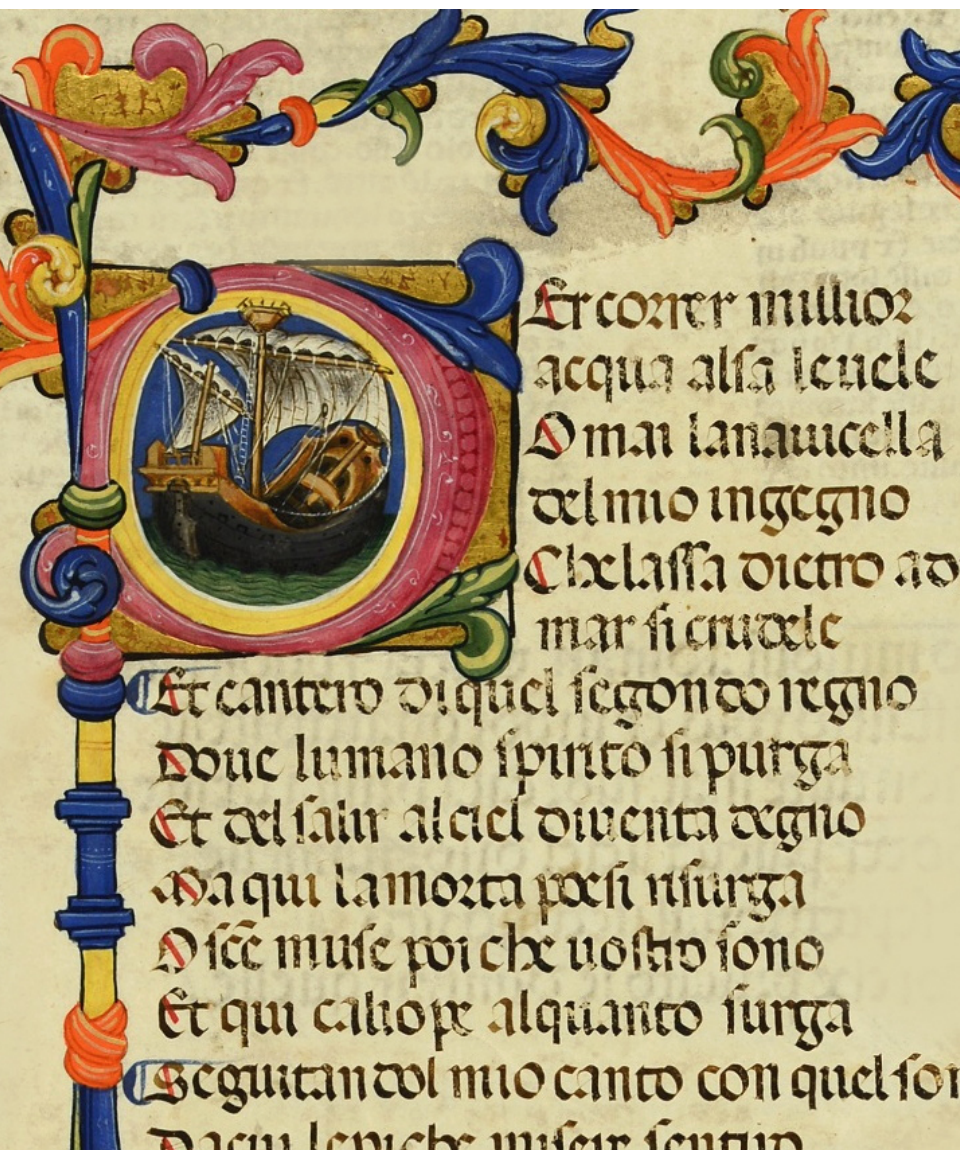 Er correr millior
acqua alsa leuele
Omai lanauicella
del mio ingegno
Che lassa dietro ad
mar si crudele
Et cantero di quel segondo regno
Doue lumano spirito si purga
Et del salir al ciel diuenta degno
Ma qui la morta poesi risurga
O scē muse poi che uostro sono
Et qui caliope alquanto surga
Seguitandol mio canto con quel son
Dacui lepiche misere sentiro